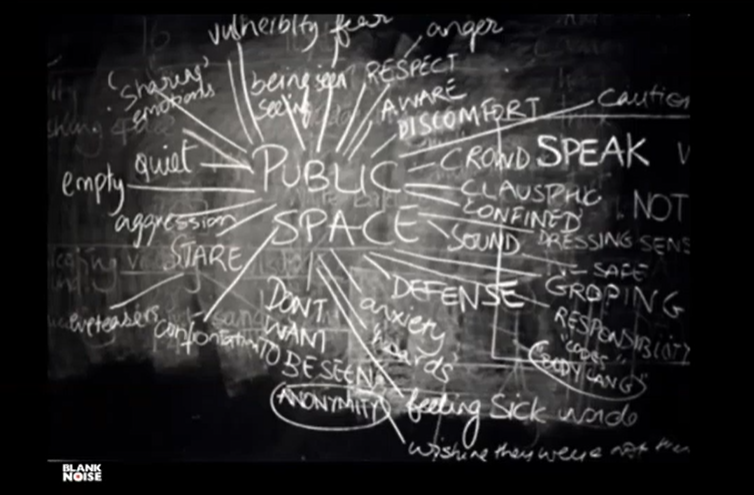 vulnerblity fear anger
'Sharing'
emotions
being seen
seeing
RESPECT
AWARE
DISCOMFORT
caution
quiet
PUBLIC
SPACE
CROWD SPEAK
empty
CLAUSPHO
CONFINED
NOT
aggression
SOUND
DRESSING SENS
STARE
SAFE
DEFENSE
GROPING
RESPONSIBILITY
eveteasers
confrontation
DON'T
WANT
TO
BE SEEN
anxiety
ANONYMITY
"CODES"
BODY LANG
feeling sick words
wishing they were not
BLANK
NOISE